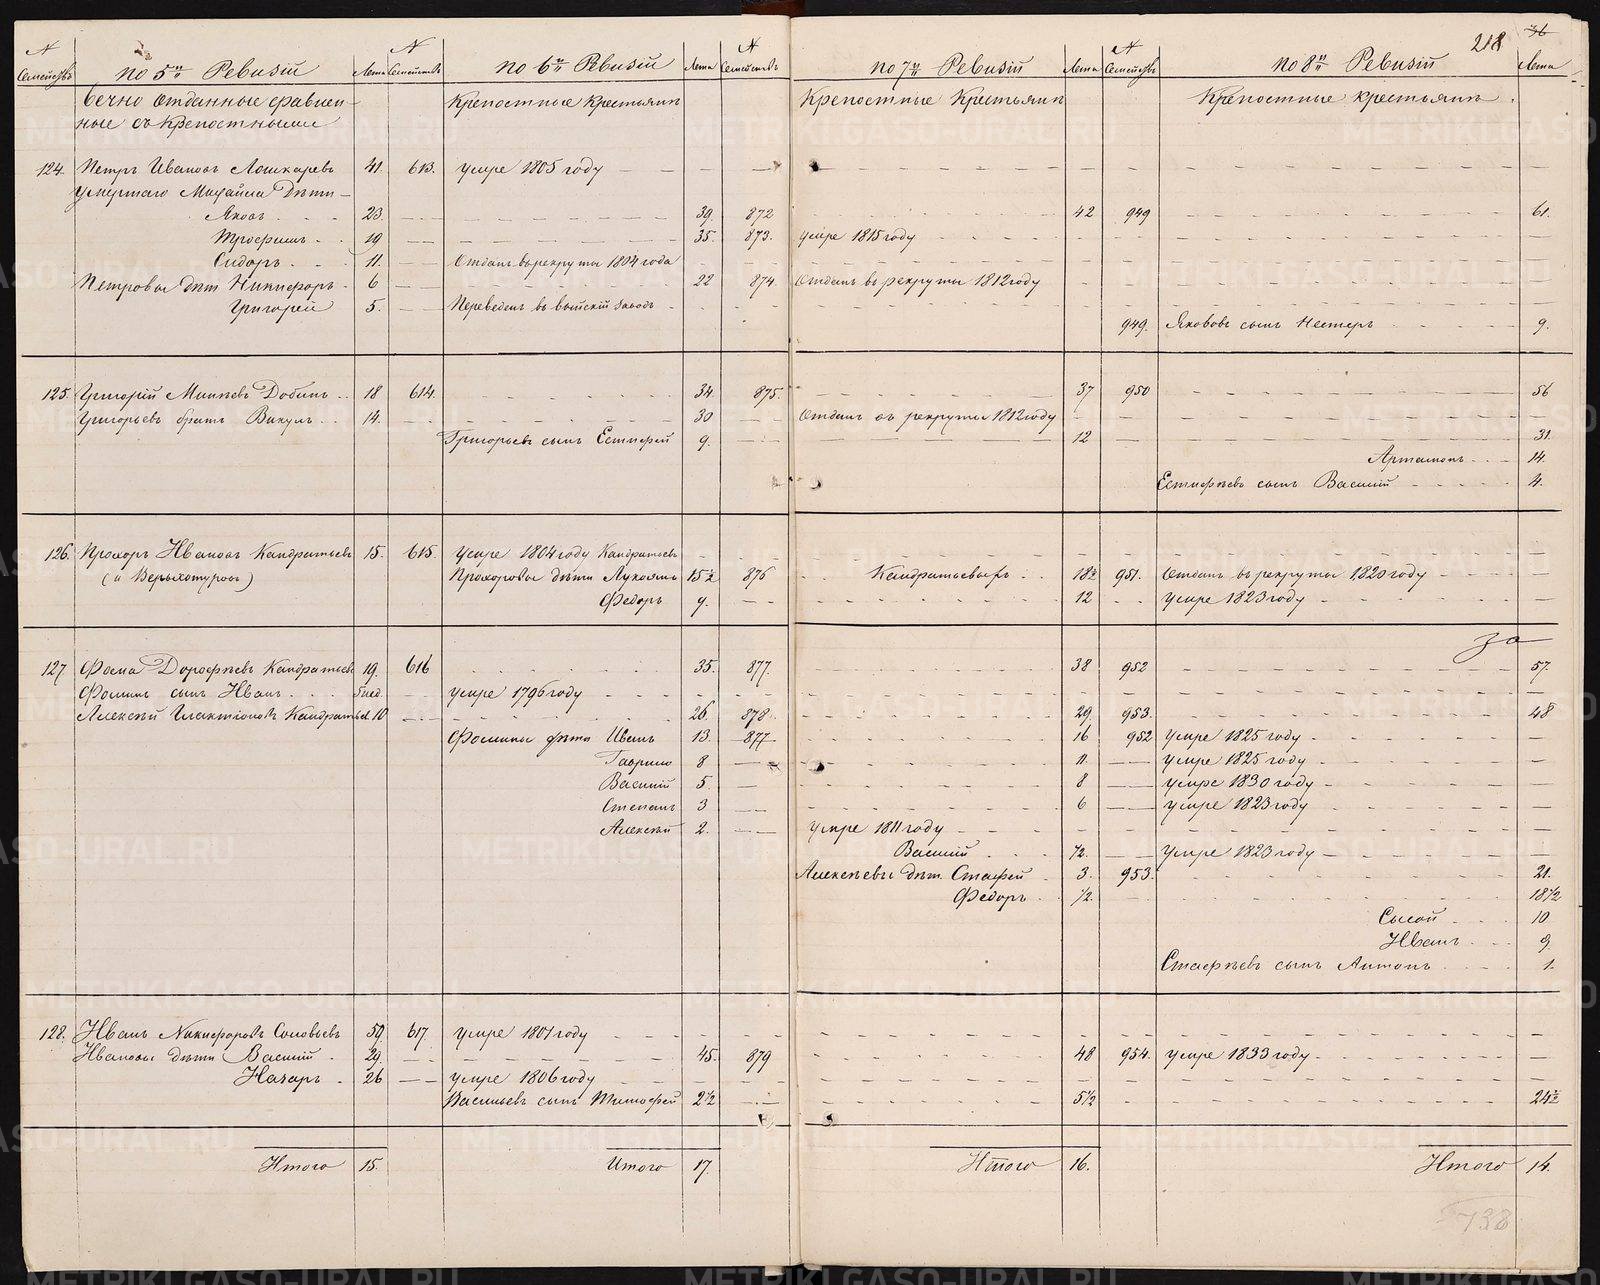 218 36
№ Семействъ по 5й Ревизіи Лета № Семействъ по 6й Ревизіи Лета № Семействъ по 7й Ревизіи Лета № Семействъ по 8й Ревизіи Лета
вечно отданные сравнен- Крепостные Крестьяня Крепостные Крестьяня Крепостные крестьяня
ные съ Крепостными
124. Петръ Ивановъ Лошкаревъ 41. 613. умре 1805 году
умершаго Михайла дѣти
Яковъ 23. 39. 872 42 949 61.
Трофимъ 19 35. 873. умре 1815 году
Сидоръ 11. Отданъ въ рекруты 1804 года
Петровы дѣти Никифоръ 6 22 874. Отданъ въ рекруты 1812 году
Григорей 5. Переведенъ въ выйскій заводъ
949. Яковов. сынъ Нестеръ 9.
125. Григорій Минѣевъ Добинъ 18 614. 34. 875. 37 950 56
Григорьевъ братъ Викулъ 14. 30 Отданъ въ рекруты 1812 году
Григорьевъ сынъ Естифей 9. 12 31.
Артамонъ 14.
Естифѣевъ сынъ Василій 4.
126. Прохоръ Ивановъ Кандратьевъ 15. 615. умре 1804 году Кандратьевъ
(и Верхотуровъ) Прохоровы дѣти Лукоянъ 15½ 876 Кандратьевы 18½ 951. Отданъ въ рекруты 1820 году
Федоръ 9. 12 умре 1823 году
за
127 Фома Дорофѣевъ Кандратьевъ 19. 616 35. 877. 38 952 57.
Фоминъ сынъ Иванъ 5 нед. умре 1796 году
Алексѣй Галактіоновъ Кандратьев 10 26. 878. 29. 953. 48
Фомины дѣти Иванъ 13. 877. 16 952 умре 1825 году
Гаврило 8 11. умре 1825 году
Василій 5 8 умре 1830 году
Степанъ 3 6 умре 1823 году
Алексѣй 2. умре 1811 году
Василій ½. умре 1823 году
Алексѣевы дѣти Стафей 3. 953. 21.
Федоръ ½. 18½
Сысой 10
Иванъ 9.
Стафѣевъ сынъ Антонъ 1.
128. Иванъ Никифоровъ Соловьевъ 50 617. умре 1801 году
Ивановы дѣти Василій 29. 45. 879 48 954. умре 1833 году
Назаръ 26 умре 1806 году
Васильевъ сынъ Тимофей 2½ 5½ 24½
Итого 15. Итого 17. Итого 16. Итого 14.
738
METRIKI.GASO-URAL.RU